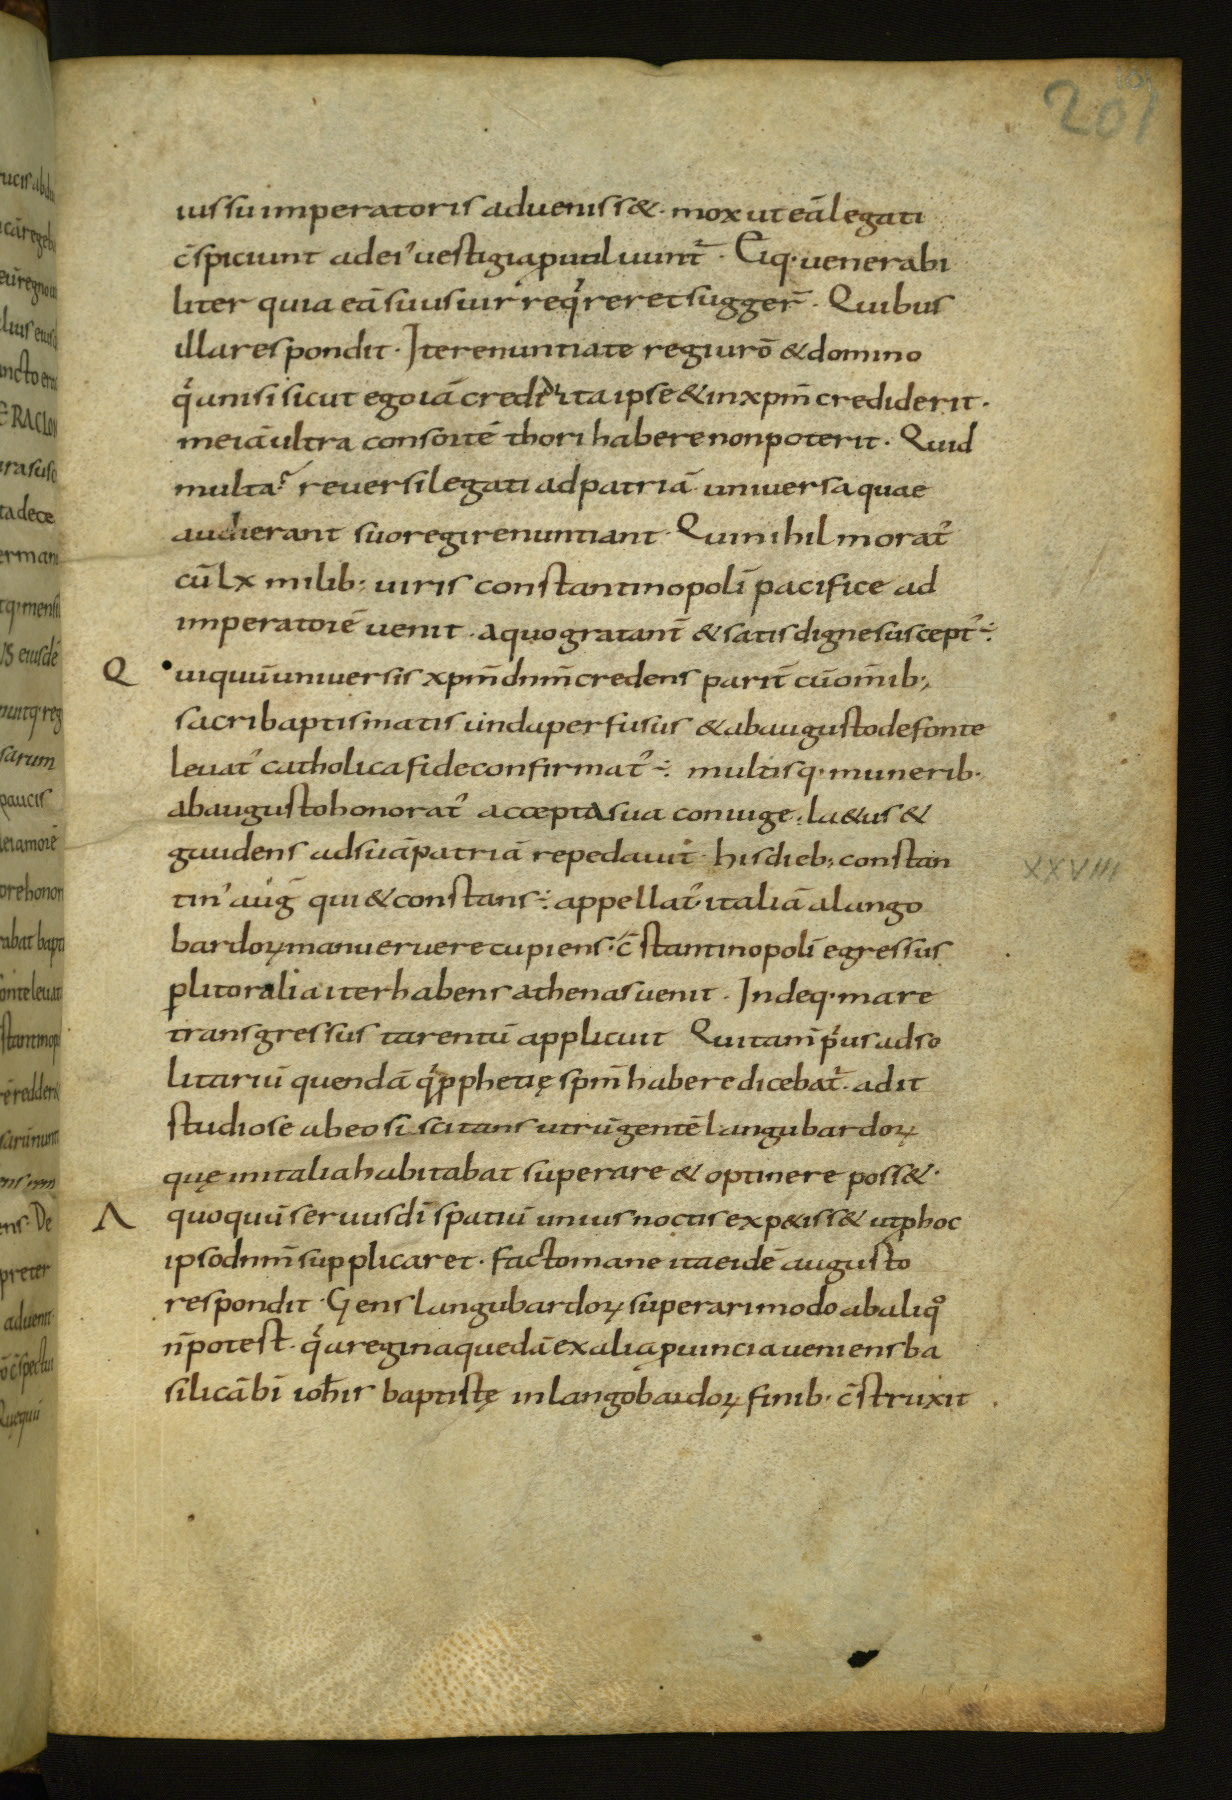 201
iussu imperatoris adueniss&. mox ut eā legati
c̄spiciunt ad ei' uestigia puoluunt̄. Eiq. uenerabi
liter quia eā suus uir req'reret sugger̄. Quibus
illa respondit. Ite renuntiate regi urō & domino
q'a nisi sicut ego iā credid'i ita ipse & in xpm̄ crediderit.
me iā ultra consortē thori habere non poterit. Quid
multa? reuersi legati ad patriā uniuersa quae
audierant suo regi renuntiant. Qui nihil morat'
cū lx milib; uiris constantinopolī pacifice ad
imperatorē uenit. a quo gratant̄ & satis digne suscept' ÷
Q uiquū uniuersis xpm̄ dnm̄ credens parit̄ cū om̄ib;
sacri baptismatis unda perfusus & ab augusto de fonte
leuat' catholica fide confirmat' ÷ multisq. munerib.
ab augusto honorat' accepta sua coniuge. la&us &
gaudens ad suā patriā repedauit. his dieb; constan
tin' auḡ qui & constans ÷ appellat' italiā a lango
bardoꝝ manu eruere cupiens. c̄stantinopolī egressus
ꝑ litoralia iter habens athenas uenit. Indeq. mare
transgressus tarentū applicuit Qui tam̄ p'us ad so
litariū quendā q' ꝓphetię spm̄ habere dicebat'. adit
studiose ab eo siscitans utrū gentē langubardoꝝ
quę in italia habitabat superare & optinere poss&.
A quo quū seruus dī spatiū unius noctis exp&iss& ut ꝓ hoc
ipso dnm̄ supplicaret. facto mane ita eidē augusto
respondit. Gens langubardoꝝ superari modo ab aliqo
n̄ potest. q'a regina quedā ex alia ꝓuincia ueniens ba
silicā bī ioh̄is baptistę in langobardoꝝ finib. c̄struxit
XXVIII